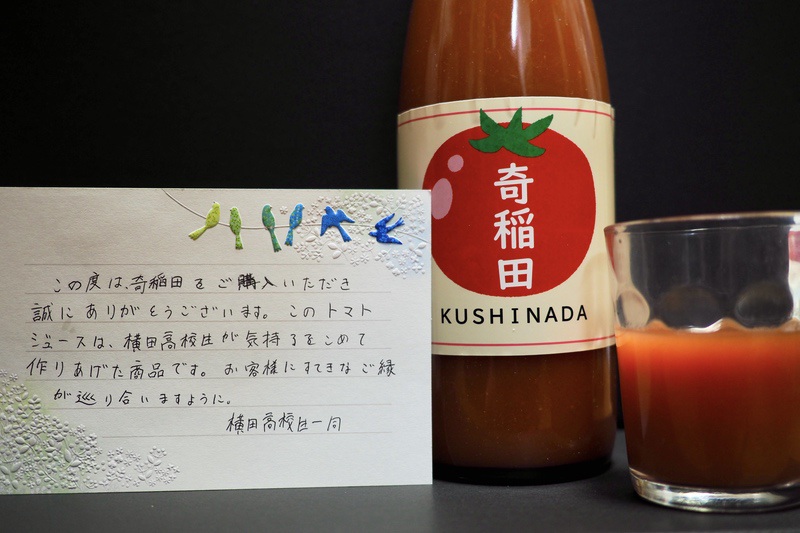 この度は、奇稲田をご購入いただき
誠にありがとうございます。このトマト
ジュースは、横田高校生が気持ちをこめて
作りあげた商品です。お客様にすてきなご縁
が巡り合いますように。
横田高校生一同
奇稲田
KUSHINADA